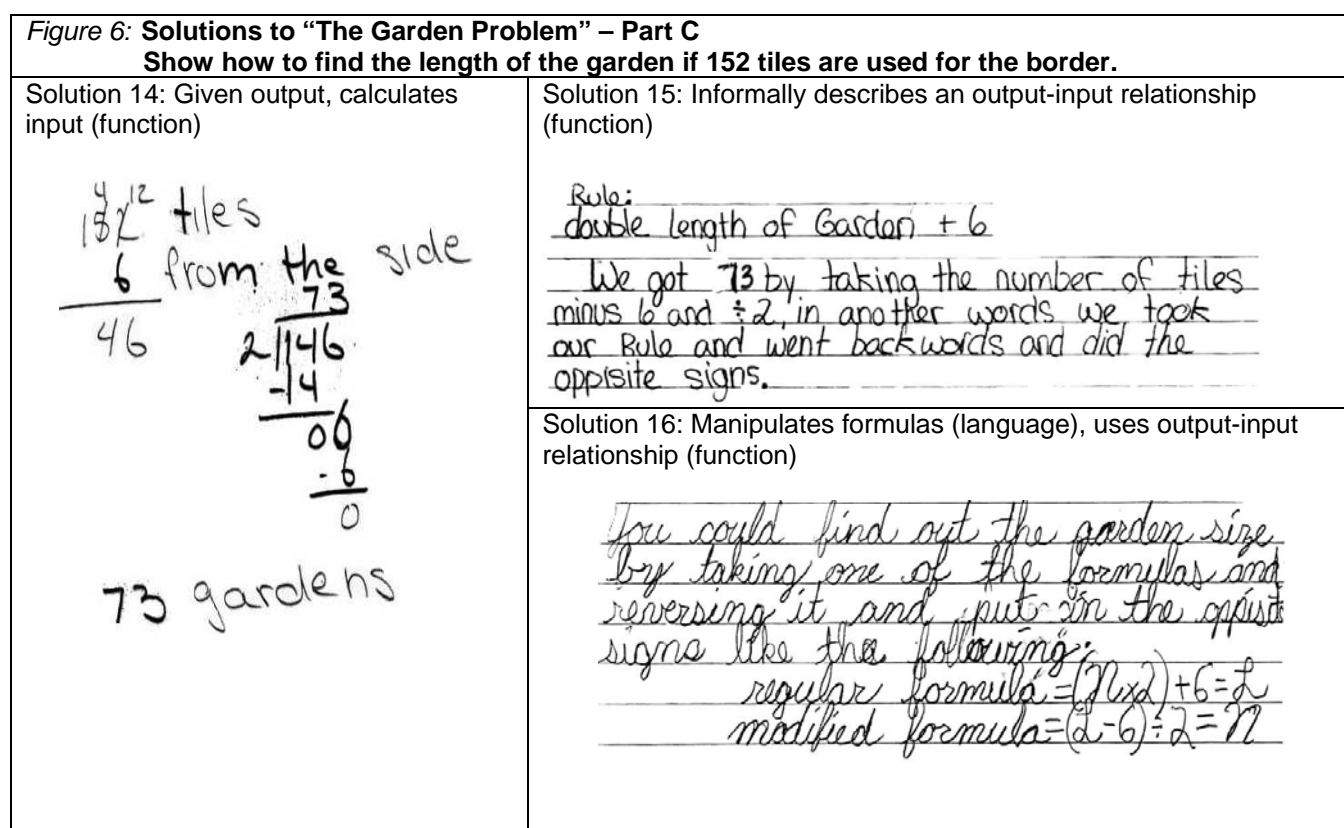 Figure 6: Solutions to “The Garden Problem” – Part C
Show how to find the length of the garden if 152 tiles are used for the border.
Solution 14: Given output, calculates
input (function)
4 12
152 tiles
6 from the side
46
73
2 146
-14
06
- 6
0
73 gardens
Solution 15: Informally describes an output-input relationship
(function)
Rule:
double length of Garden + 6
We got 73 by taking the number of tiles
minus 6 and ÷2, in another words we took
our Rule and went backwords and did the
oppisite signs.
Solution 16: Manipulates formulas (language), uses output-input
relationship (function)
You could find out the garden size
by taking one of the formulas and
reversing it and put in the oppisit
signs like the following;
regular formula=(Nx2)+6=L
modified formula=(L-6)÷2=N